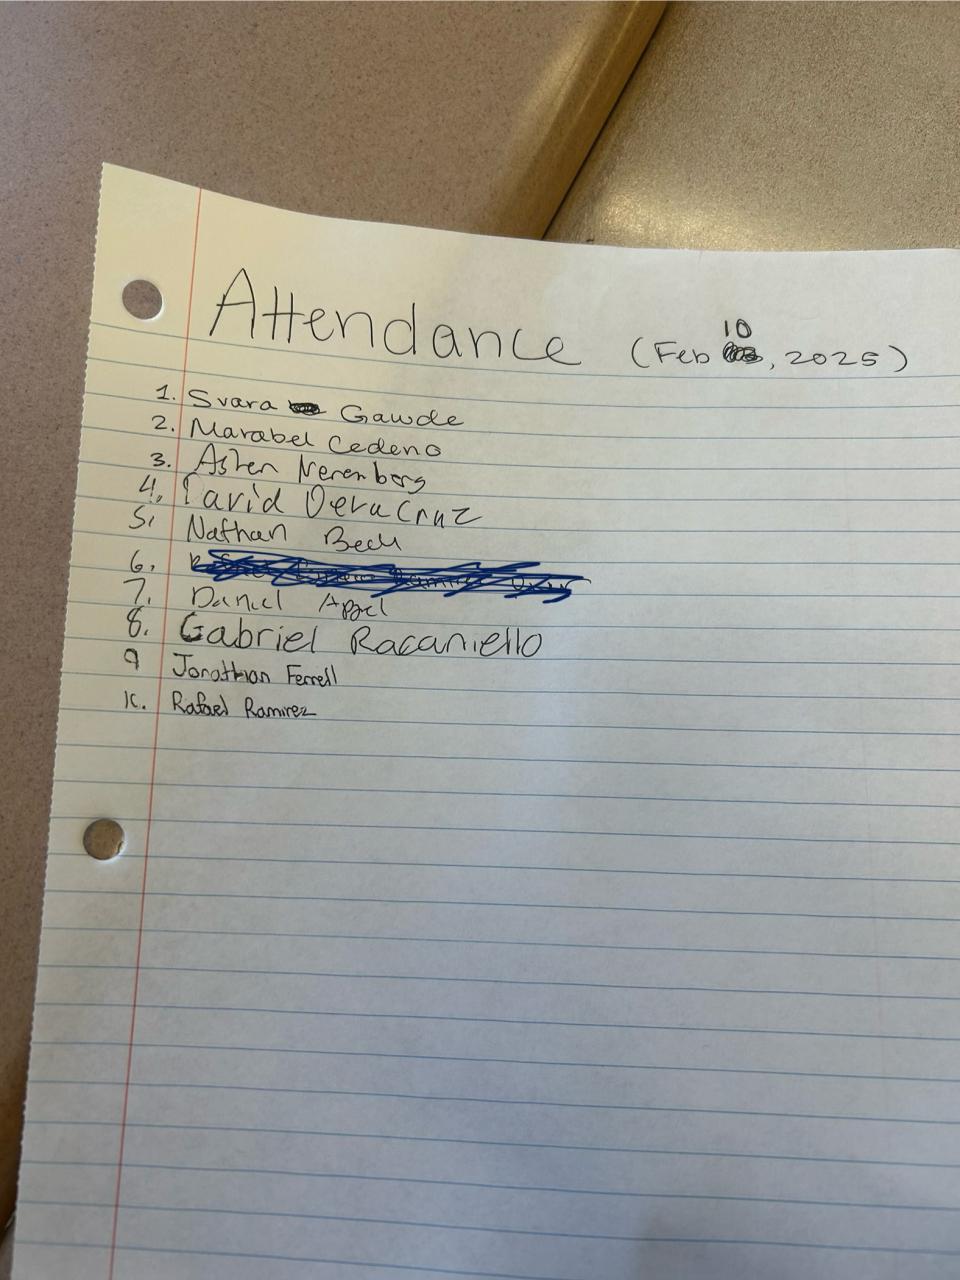 Attendance (Feb 10, 2025)
1. Svara Gawde
2. Marabel Cedeno
3. Nerenberg
4. David Vera Cruz
5. Nathan Beck
6.
7. Daniel
8. Gabriel Racaniello
9 Jonathan Ferrell
10. Rafael Ramirez